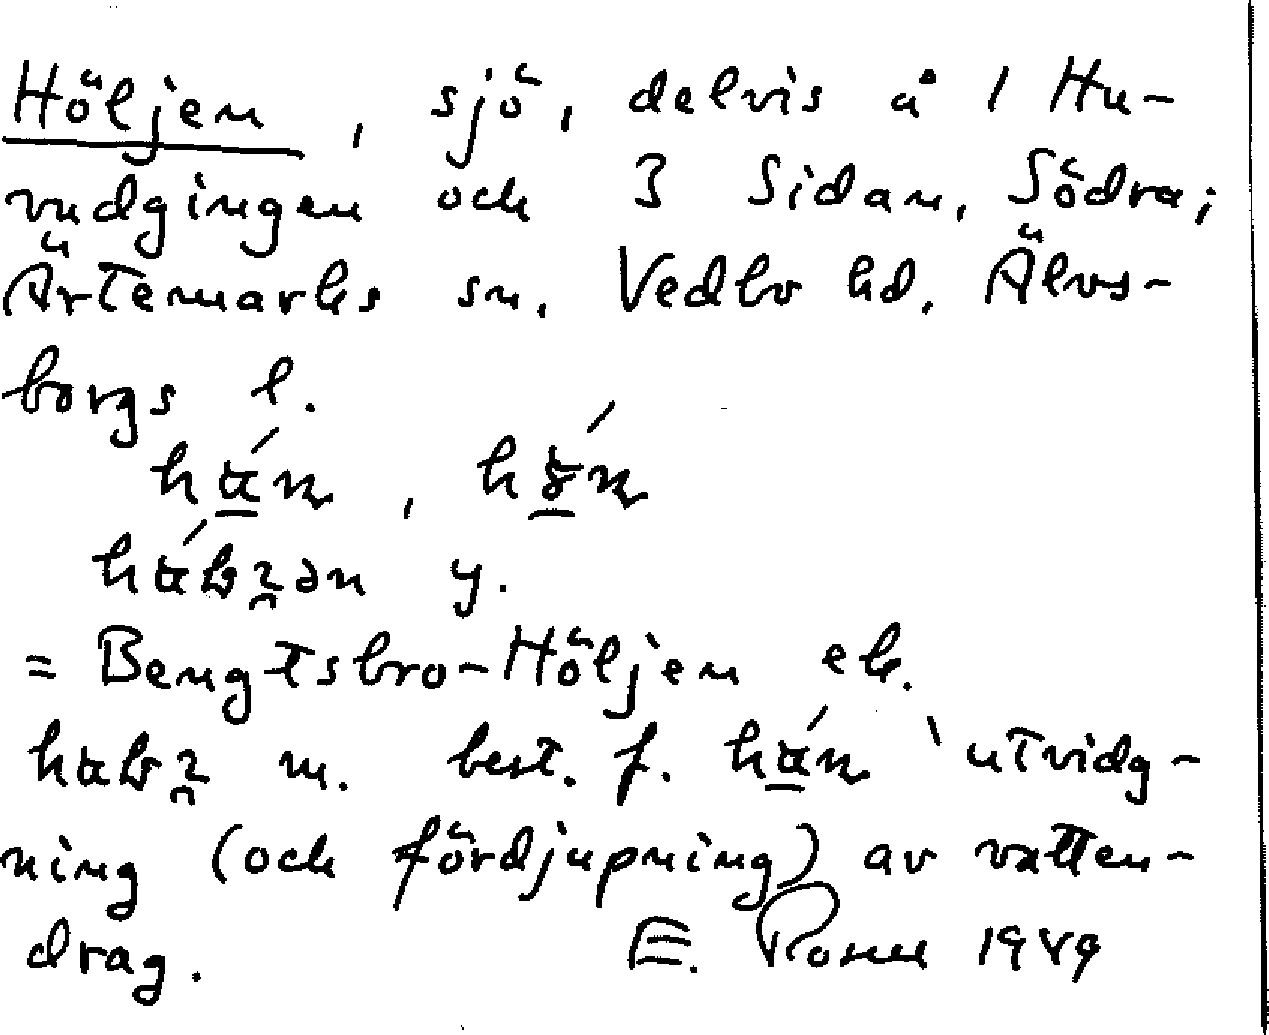 Höljen, sjö, delvis å 1 Hu-
vudgingen och 3 Sidan, Södra;
Ärtemarks sn. Vedbo hd. Älvs-
borgs l.
y.
= Bengtsbro-Höljen ek.
m. best. f. 'utvidg-
ning (och fördjupning) av vatten-
drag. E. Rosell 1949